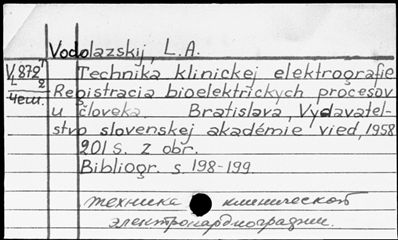 Vodolazskij, L.A.
V.872 Technika klinickej elektrografie
L 2 Registracia bioelektrickych procesov
Чеш. u človeka. Bratislava, Vydavatel-
stvo slovenskej akadémie vied, 1958
201 s. z obr.
Bibliogr. s. 198-199.
техника клинической
электрокардиографии.